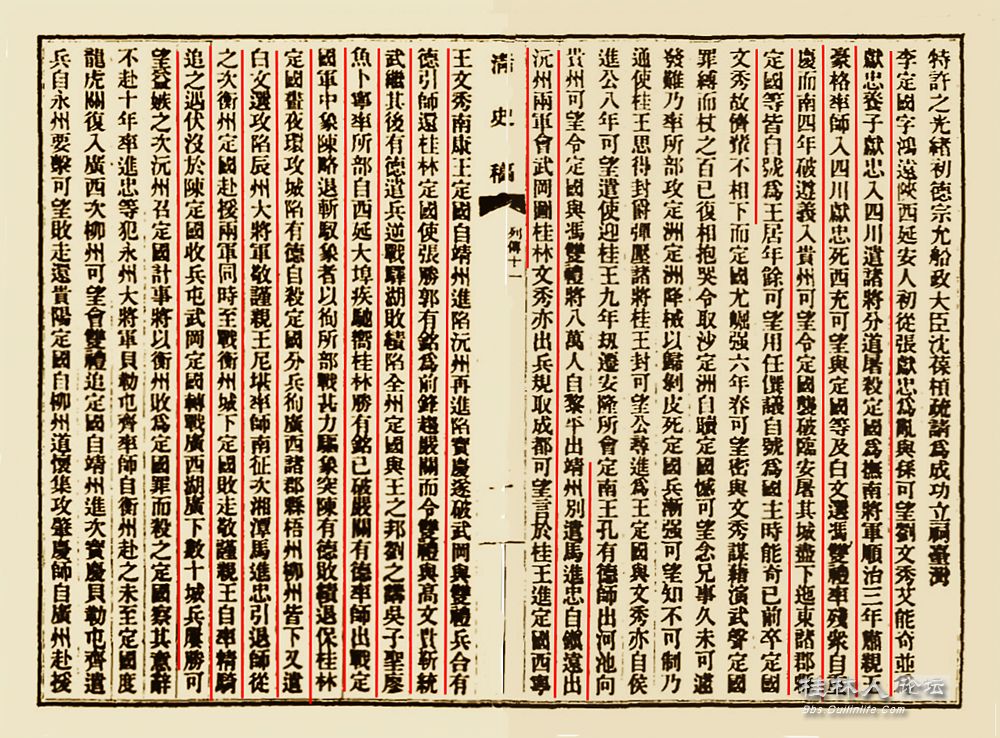 特許之光緒初德宗允船政大臣沈葆楨疏請為成功立祠臺灣
李定國字鴻遠陝西延安人初從張獻忠為亂與孫可望劉文秀艾能奇並
獻忠養子獻忠入四川遣諸將分道屠殺定國為撫南將軍順治三年肅親王
豪格率師入四川獻忠死西充可望與定國等及白文選馮雙禮率殘衆自
慶而南四年破遵義入貴州可望令定國襲破臨安屠其城盡下迤東諸郡
定國等皆自號為王居年餘可望用任僎議自號為國主時能奇已前卒定國
文秀故儕輩不相下而定國尤崛强六年春可望密與文秀謀藉演武聲定國
罪縛而杖之百已復相抱哭令取沙定洲自贖定國憾可望念兄事久未可遽
發難乃率所部攻定洲定洲降械以歸剝皮死定國兵漸强可望知不可制乃
通使桂王思得封爵彈壓諸將桂王封可望公尋進為王定國與文秀亦自侯
進公八年可望遣使迎桂王九年刼遷安隆所會定南王孔有德師出河池向
貴州可望令定國與馮雙禮將八萬人自黎平出靖州別遣馬進忠自鎮遠出
沅州兩軍會武岡圖桂林文秀亦出兵規取成都可望言於桂王進定國西寧
清史稿
列傳十一
王文秀南康王定國自靖州進陷沅州再進陷寶慶遂破武岡與雙禮兵合有
德引師還桂林定國使張勝郭有銘為前鋒趨嚴關而令雙禮與高文貴靳統
武繼其後有德遣兵逆戰驛湖敗績陷全州定國與王之邦劉之講吳子聖廖
魚卜寧率所部自西延大埠疾馳嚮桂林勝有銘已破嚴關有德率師出戰定
國軍中象陳略退斬馭象者以徇所部戰甚力驅象突陳有德敗績退保桂林
定國晝夜環攻城陷有德自殺定國分兵徇廣西諸郡縣梧州柳州皆下又遣
白文選攻陷辰州大將軍敬謹親王尼堪率師南征次湘潭馬進忠引退師從
之次衡州定國赴援兩軍同時至戰衡州城下定國敗走敬謹親王自率精騎
追之遇伏沒於陳定國收兵屯武岡定國轉戰廣西湖廣下數十城兵屢勝可
望益嫉之次沅州召定國計事將以衡州敗為定國罪而殺之定國察其意辭
不赴十年率進忠等犯永州大將軍貝勒屯齊率師自衡州赴之未至定國度
龍虎關復入廣西次柳州可望會雙禮追定國自靖州進次寶慶貝勒屯齊遣
兵自永州要擊可望敗走還貴陽定國自柳州道懷集攻肇慶師自廣州赴援
桂林人论坛
Bbs.Guilinlife.Com